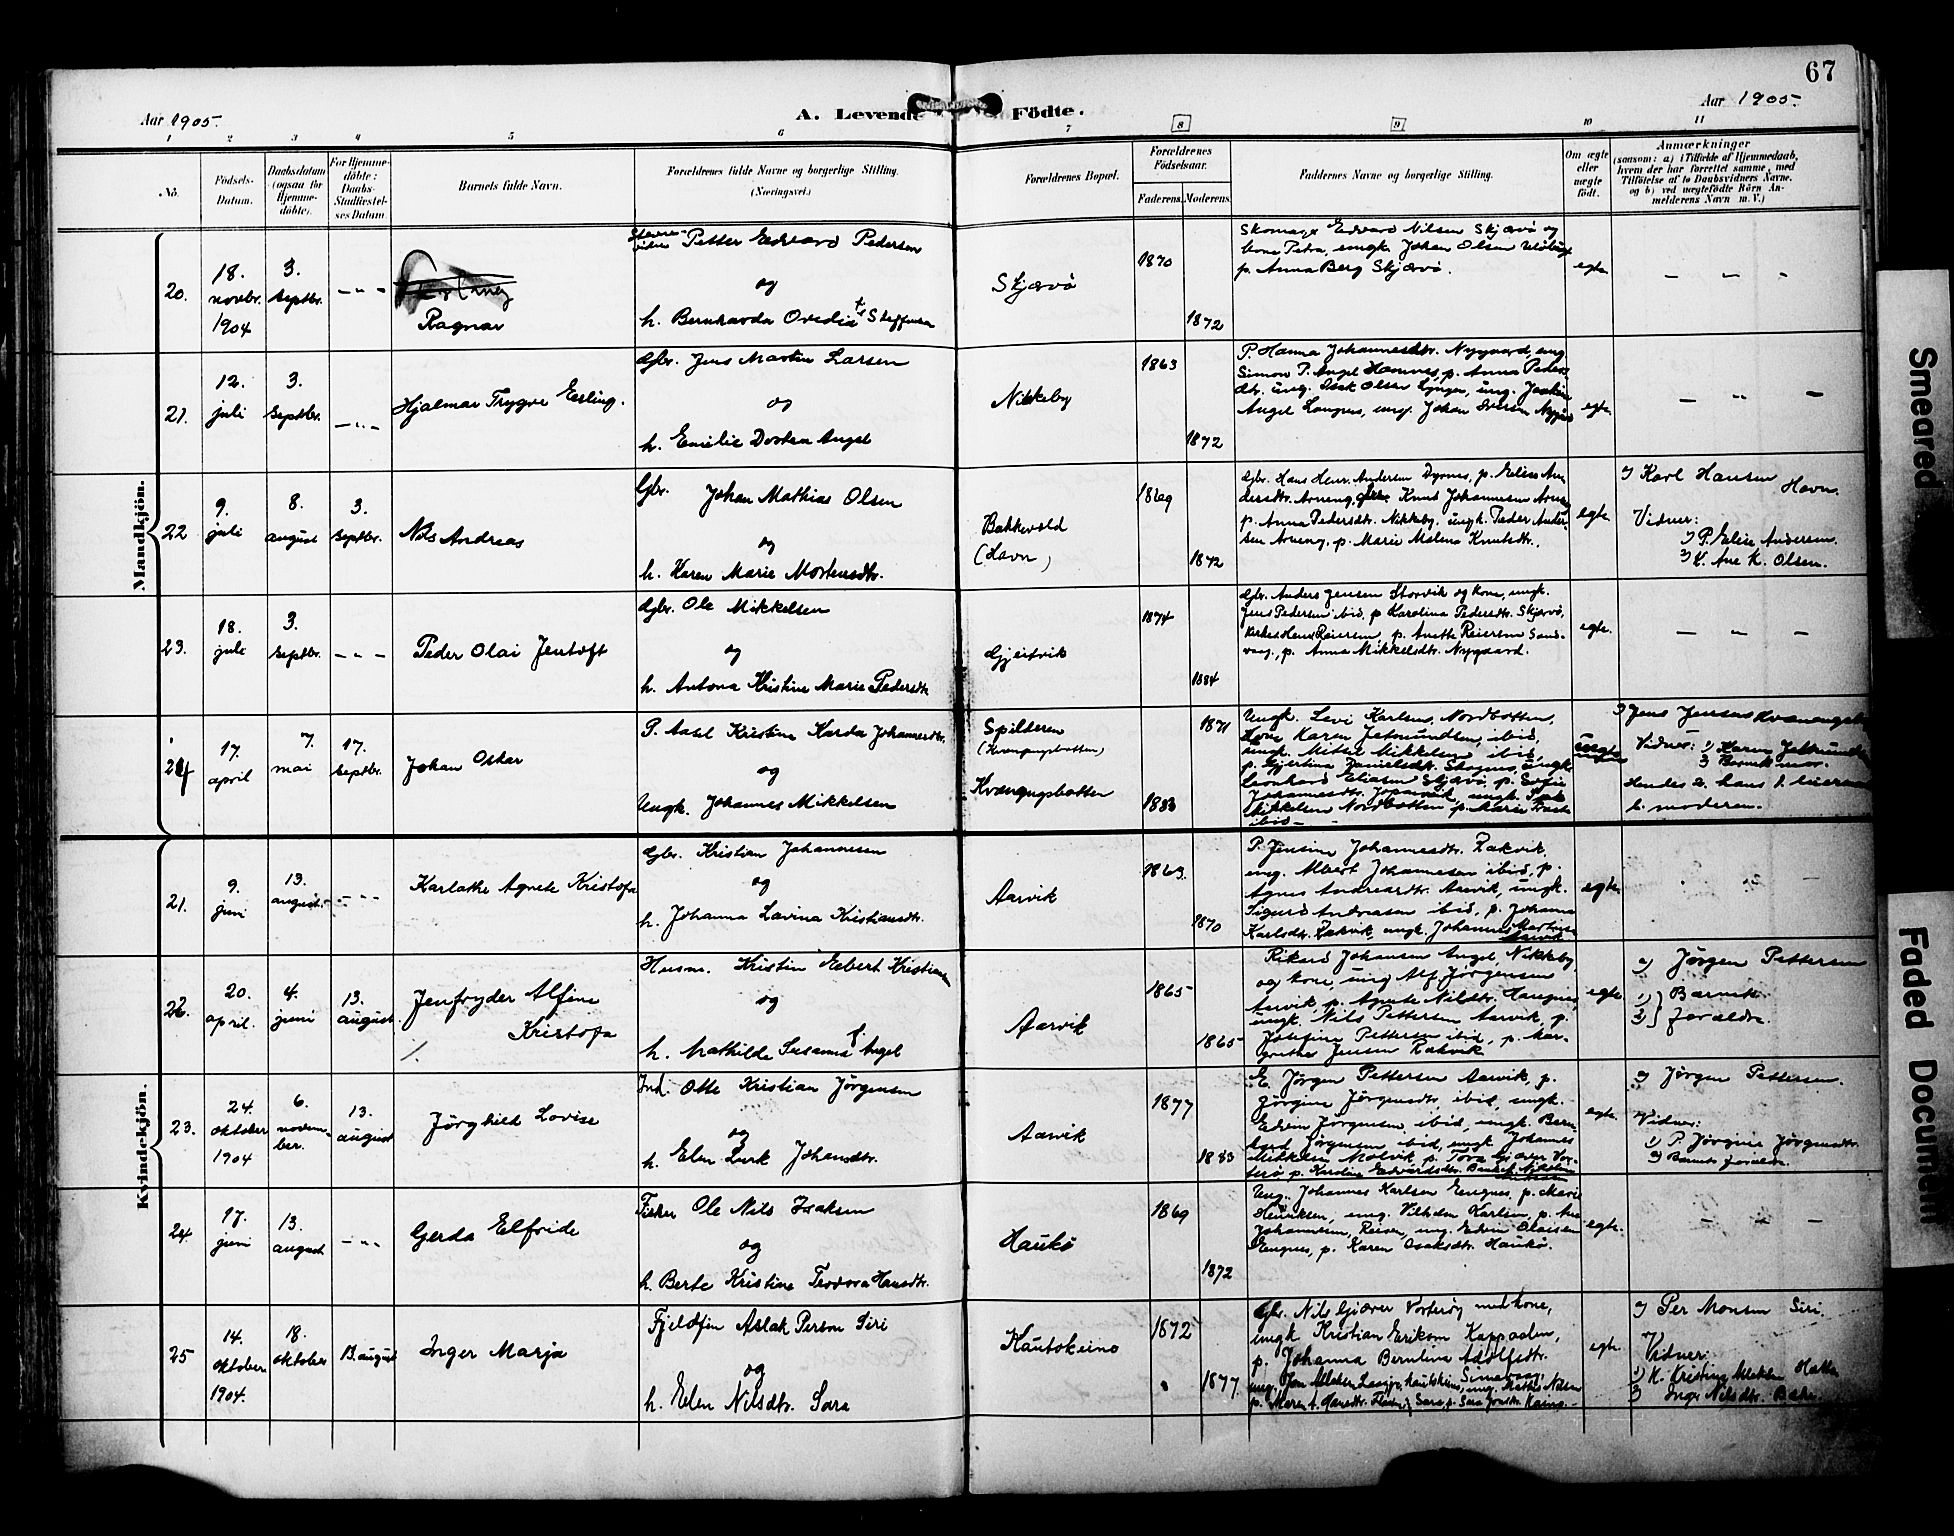 67
Aar 1905.
A. Levende Födte.
Aar 1905.
1 2 3 4 5 6 7 8 9 10 11
No.
Födsels-
Datum.
Daabsdatum
(ogsaa för
Hjemme-
döbte).
For Hjemme-
döbte:
Daabs-
Stadfæstel-
ses Datum
Barnets fulde Navn.
Forældrenes fulde Navne og borgerlige Stilling.
(Næringsvei.)
Forældrenes Bopæl.
Forældrenes
Födselsaar.
Faderens. Moderens.
Faddernes Navne og borgerlige Stilling.
Om ægte
eller
uægte
födt.
Anmærkninger
(saasom: a) i Tilfælde af Hjemmedaab,
hvem der har forrettet samme, med
Tilföielse af to Daabsvidners Navne.
og b) ved uægtefödte Börn An-
melderens Navn m. V.)
Mandkjön.
20.
18.
novbr.
1904
3.
septbr.
Ragnar
Petter Edvard Pedersen
og
h. Bernharda Ovedia Steffensen
Skjærvö
1870
1872
Skomager Edvard Nilsen Skjærvö og
kone Petra, ungk. Johan Olsen
p. Anna Berg Skjærvö.
egte
21.
12.
juli
3.
septbr.
Hjalmar Trygve Erling.
Gbr. Jens Martin Larsen
og
h. Emilie Dortea Angel
Nikkeby
1863
1872
P. Hanna Johannesdtr. Nygaard, ung
Simon P. Angel Hamnes, p. Anna Peders
dtr. ung. Isak Olsen Lyngen, ung. Joakim
Angel Laugnes, ung. Johan Iversen
egte
22
9.
juli
8.
august
3.
septbr.
Nils Andreas
Gbr. Johan Mathias Olsen
og
h. Karen Marie Mortensdtr.
Bakkevold
(Havn)
1869
1872
Gbr. Hans Henr. Andersen Dyrnes, p. Elise An
dersdtr. Arnöng, Knud Johannesen
p. Anna Pedersdtr. Nikkeby. ungk. Peder Ander
sen Arnöng, p. Marie Malena Knutsdtr.
egte
Karl Hansen
Havn.
Vidner:
1) P. Elise Andersen
2) K. Ane K. Olsen.
23.
18.
juli
3.
septbr.
Peder Olai Jentoft
Gbr. Ole Mikkelsen
og
h. Antona Kristine Marie Pedersdtr
Gjeitvik
1874
1884
Gbr. Anders Jensen Storvik og kone, ungk.
Jens Pedersen ibid, p Karolina Pedersdtr. Skjærvö,
Reiersen, p. Anette Reiersen Sand-
vaag, p. Anna Mikkelsdtr. Nygaard.
egte.
24
17.
april
7.
mai
17.
septbr.
Johan Oskar
P. Aasel Kristine Karda Johannesdtr.
og
Ungk. Johannes Mikkelsen
Spilderen
(Kvænangsbotten)
Kvænangsbotten
1871
1883
Ungk. Levi Karlsen, Nordbotten,
Kone Karen Jetmundsen, ibid,
ungk. Mikkel Mikkelsen, ibid,
p. Gjertine Danielsdtr. Skognes, ungk
Leonhard Eliasen Skjærvö, p. Sofie
Johannesdtr. ungk.
Mikkelsen Nordbotten p. Marie
ibid
uegte
Jens Jensen
Vidner: 1) Karen Jetmundsen
2) Barnets mor.
Hendes 2. hans 1. leiermaal
b. moderen.
Kvindekjön.
21.
9.
juni
13.
august.
Karlathe Agnete Kristofa
Gbr. Kristian Johannesen
og
h. Johanna Lavina Kristiansdtr.
Aarvik
1863.
1870
P. Jensine Johannesdtr. Rakvik,
ung. Albert Johannesen ibid, p.
Agnes Andreasdtr. Aarvik, ungk.
Sigurd Andreasen ibid, p. Johanna
Karlsdtr. Rakvik, ungk. Johannes Martinsen
Aarvik
egte
22.
20.
april.
4.
juni
13.
august
Jenfryder Alfine
Kristofa
Husm. Kristin Edbert Kristiansen
og
h. Mathilde Susanna Angel
Aarvik
1865
1865
Rikard Johansen Angel, Nikkeby
og kone ung Alf Jörgensen
Aarvik p. Agnete Nilsdtr. Haugnes,
ungk. Nils Pettersen Aarvik, p.
Josefine Pettersen ibid, p. Mar-
grethe Jensen Rakvik
egte
Jörgen Pettersen
1)
2) Barnets
forældre.
23.
24.
oktober
1904
6.
novem-
ber.
13.
august
Jörghild Lovise
Ind. Otte Kristian Jörgensen
og
h. Elen Johansdtr.
Aarvik
1877
1883
E. Jörgen Pettersen Aarvik, p.
Jörgine Jörgensdtr. ibid, ungk.
Edvin Jörgensen, ibid, ungk. Bern-
hard Jörgensen ibid, ungk Johannes
Mikkelsen Molvik p. Tora Giæver Vor-
terö p.
egte
Jörgen Pettersen.
Vidner:
1) P. Jörgine Jörgensdtr.
2) Barnets forældre
24.
17.
juni
13.
august
Gerda Elfride
Fisker Ole Nils Isaksen
og
h. Berte Kristine Teodora Hansdtr.
Haukö
1869
1872
Ung. Johannes Karlsen Engnes, p. Marie
Henriksen, ung. Vilhelm Karlsen, p. Ane
Johannesen, Reisen, ung. Edvin Olausen
Engnes, p. Karen Isaksdtr. Haukö.
egte.
25
14.
oktober
1904.
18.
oktober
13. august
Inger Marja
Fjeldfin Aslak Person Siri
og
h. Elen Nilsdtr. Sara
Kautokeino
1872
1877.
Gbr. Nils Giæver Vorteröy med kone,
ungk Kristian Erikson Kappaalen,
p. Johanna Berntina Adolfsdtr.
egte.
Per Monsen Siri.
Vidner:
1) K. Kristine Hætta
2) Inger Nilsdtr.
Smeared
Faded Document